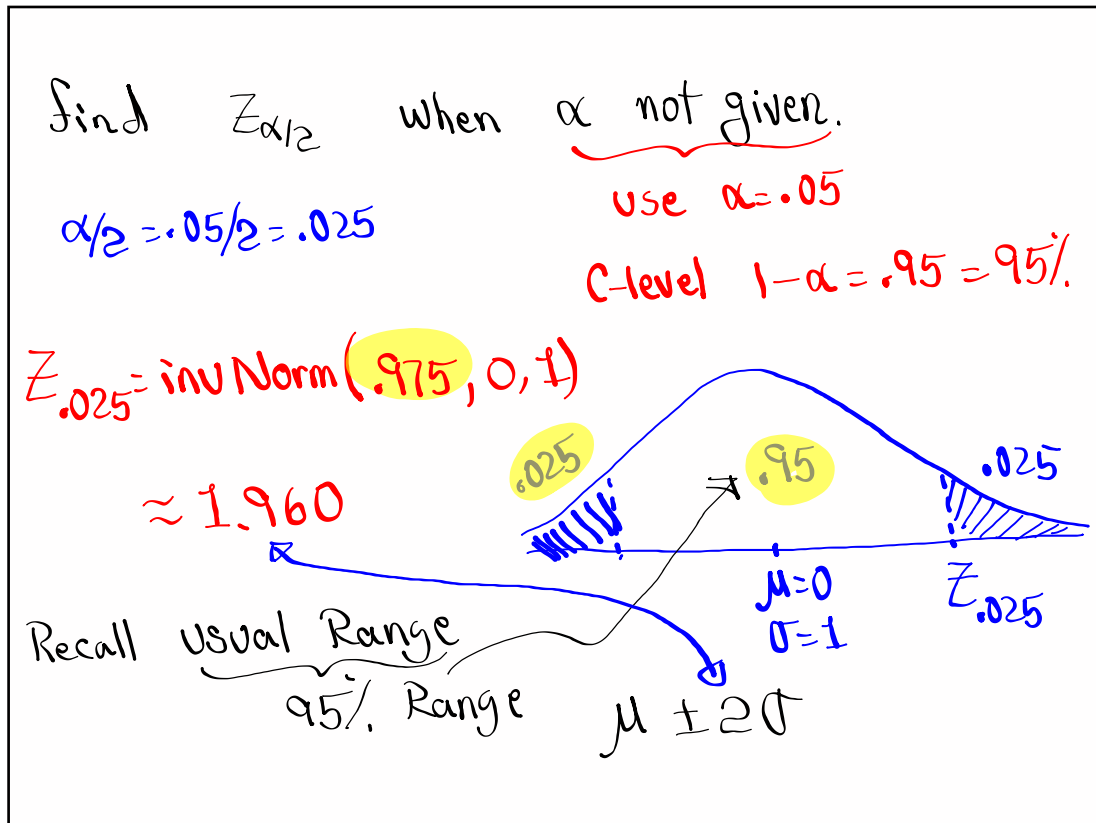 find Zα/2 when α not given.
use α=.05
α/2 =.05/2 = .025
C-level 1-α = .95 = 95%
Z.025 = invNorm(.975, 0, 1)
.025 .95 .025
≈ 1.960
μ=0 Z.025
σ=1
Recall usual Range
95% Range μ ± 2σ